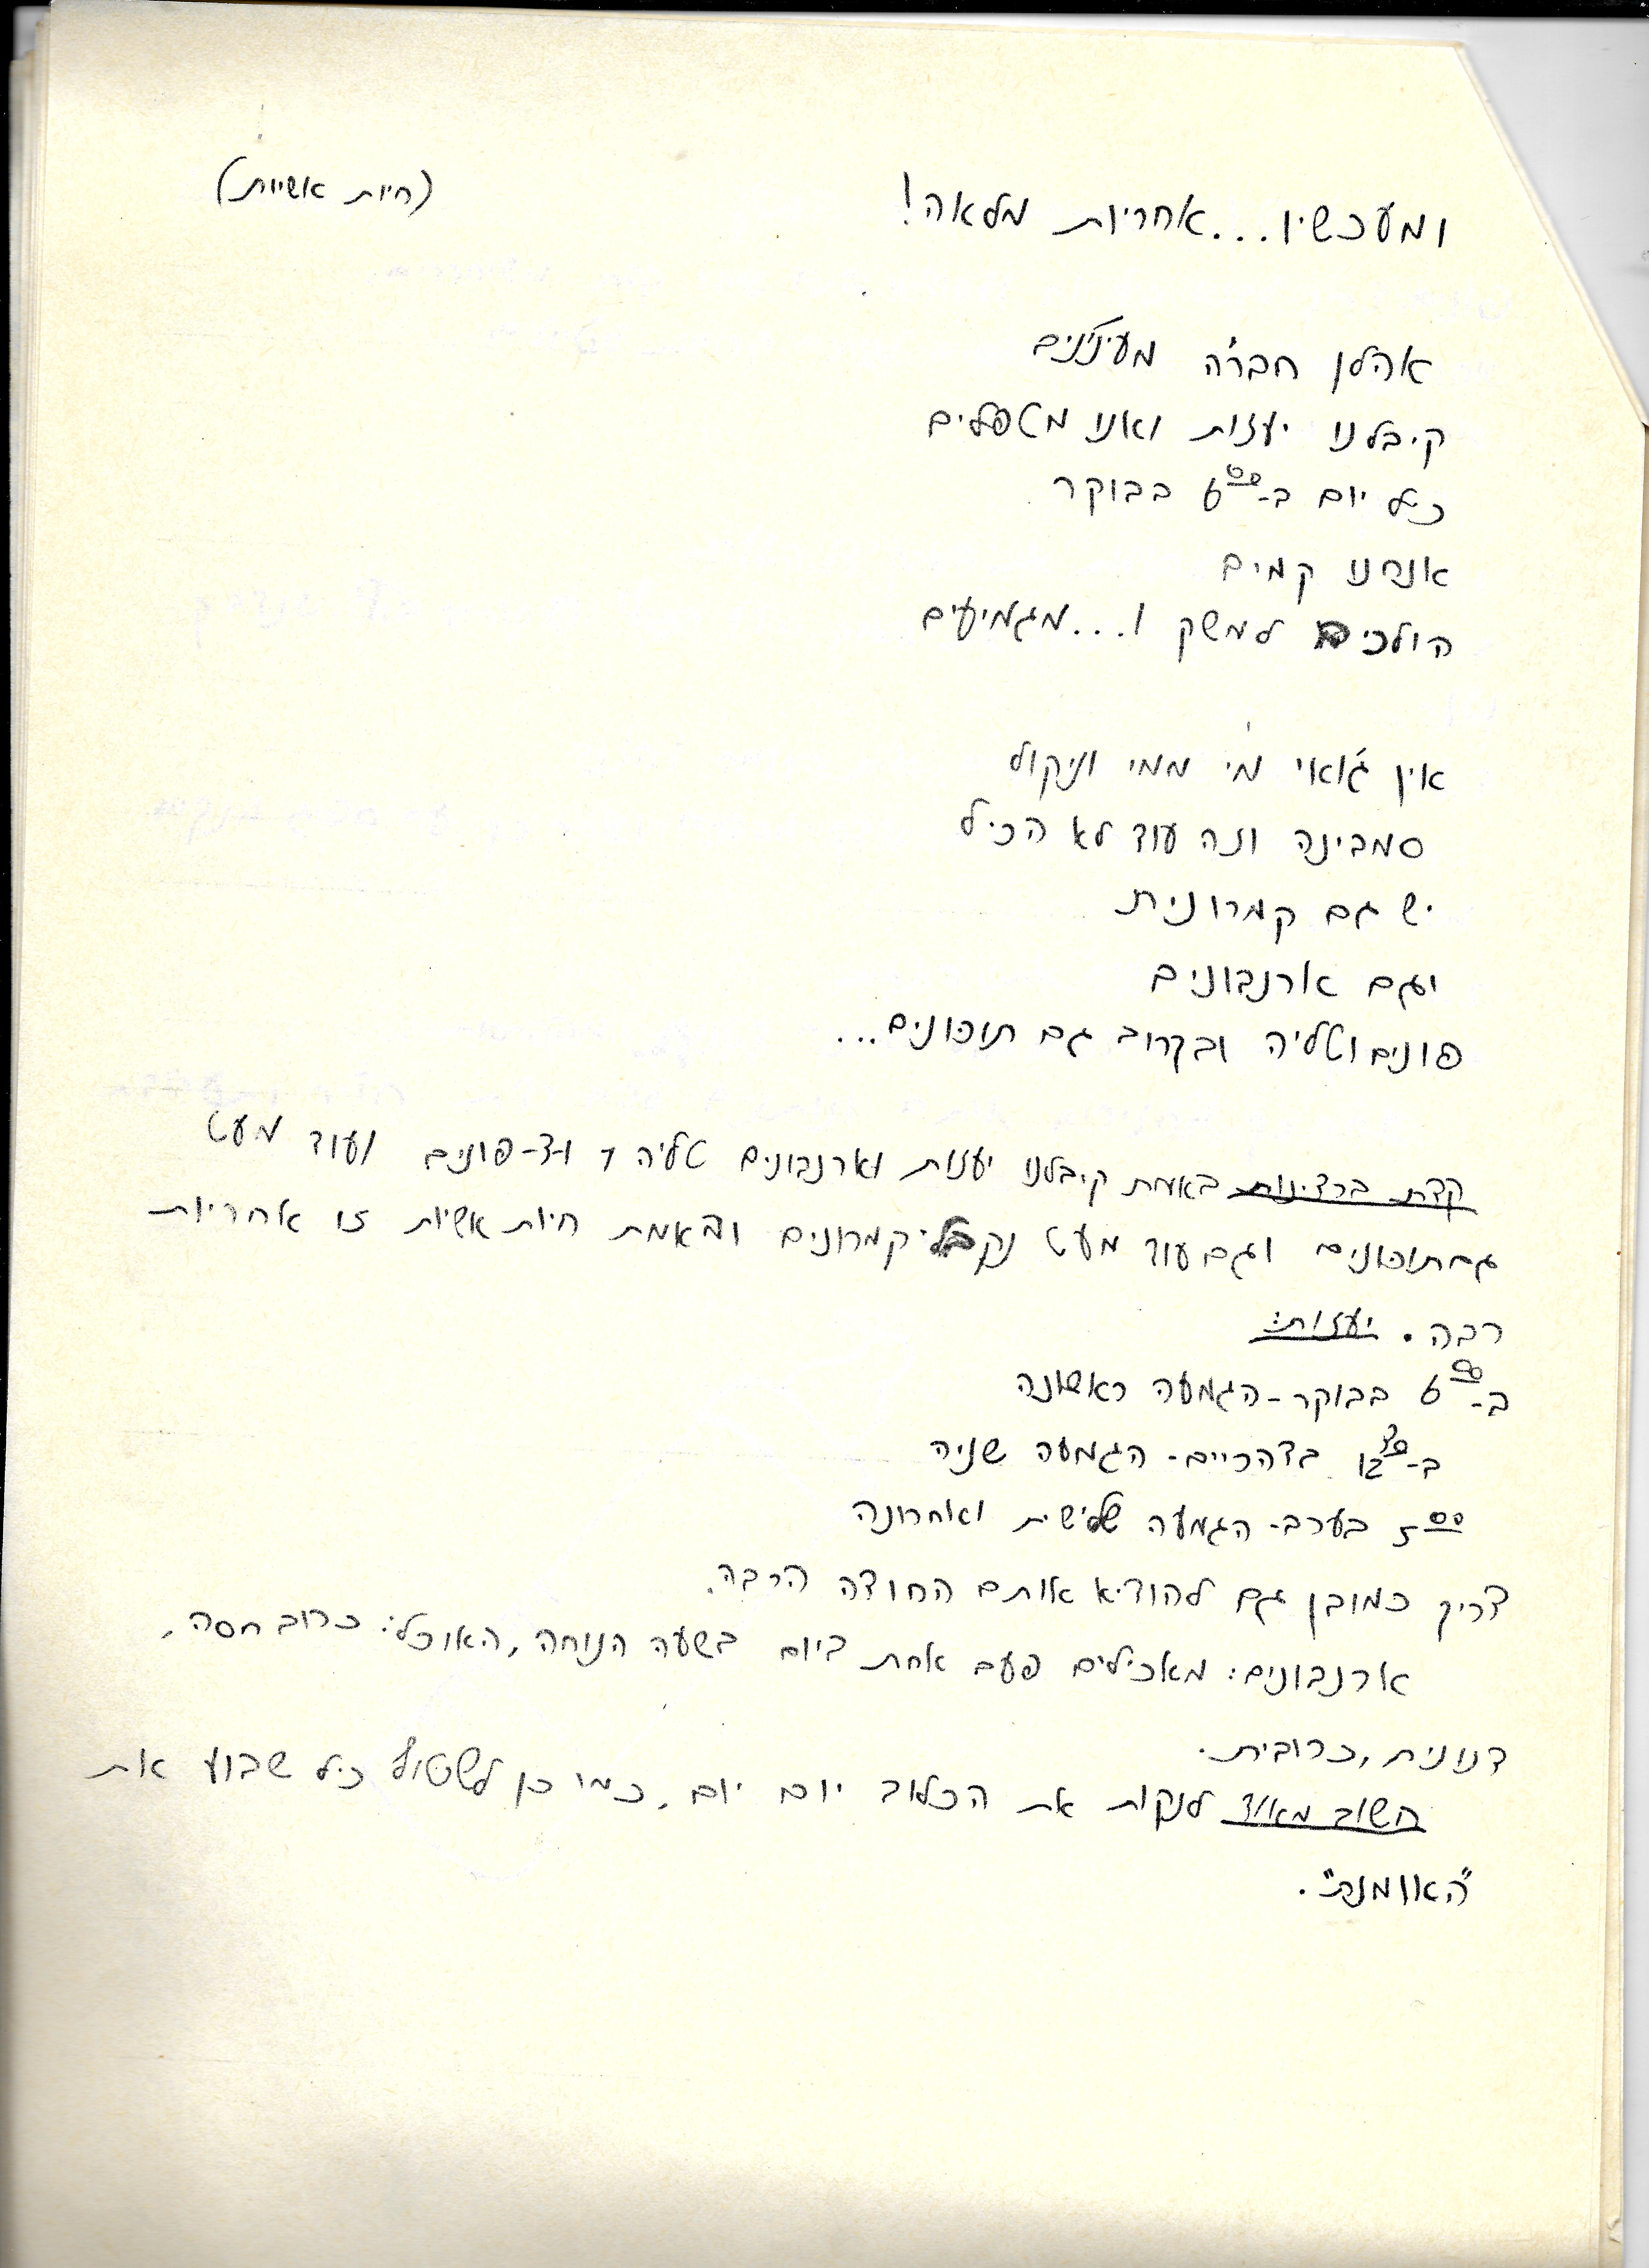 (חיות אשיות)
ומעכשיו...אחריות מלאה!
אהלן חבר'ה מעינינים
קיבלנו יעזות ואנו מטפלים
כל יום ב-6⁰⁰ בבוקר
אנחנו קמים
הולכים למשק ו...מגמיעים
אין ג'ואי מי ממי וניקול
סמבינה וזה עוד לא הכל
יש גם קמרונית
וגם ארנבונים
פונים וטליה ובקרוב גם תוכונים...
קצת ברצינות באמת קיבלנו יעזות וארנבונים טליה 1 ו-3-פונים ועוד מעט
גם תוכונים וגם עוד מעט נקבל קמרונים ובאמת חיות אשיות זו אחריות
רבה. יעזות:
ב-6⁰⁰ בבוקר-הגמעה ראשונה
ב-12³⁰ בצהריים-הגמעה שניה
5⁰⁰ בערב-הגמעה שלישית ואחרונה
צריך כמובן גם להוציא אותם החוצה הרבה.
ארנבונים: מאכילים פעם אחת ביום בשעה הנוחה, האוכל: כרוב חסה,
צנונית, כרובית.
חשוב מאוד לנקות את הכלוב יום יום, כמו כן לשטוף כל שבוע את
"האומנת".